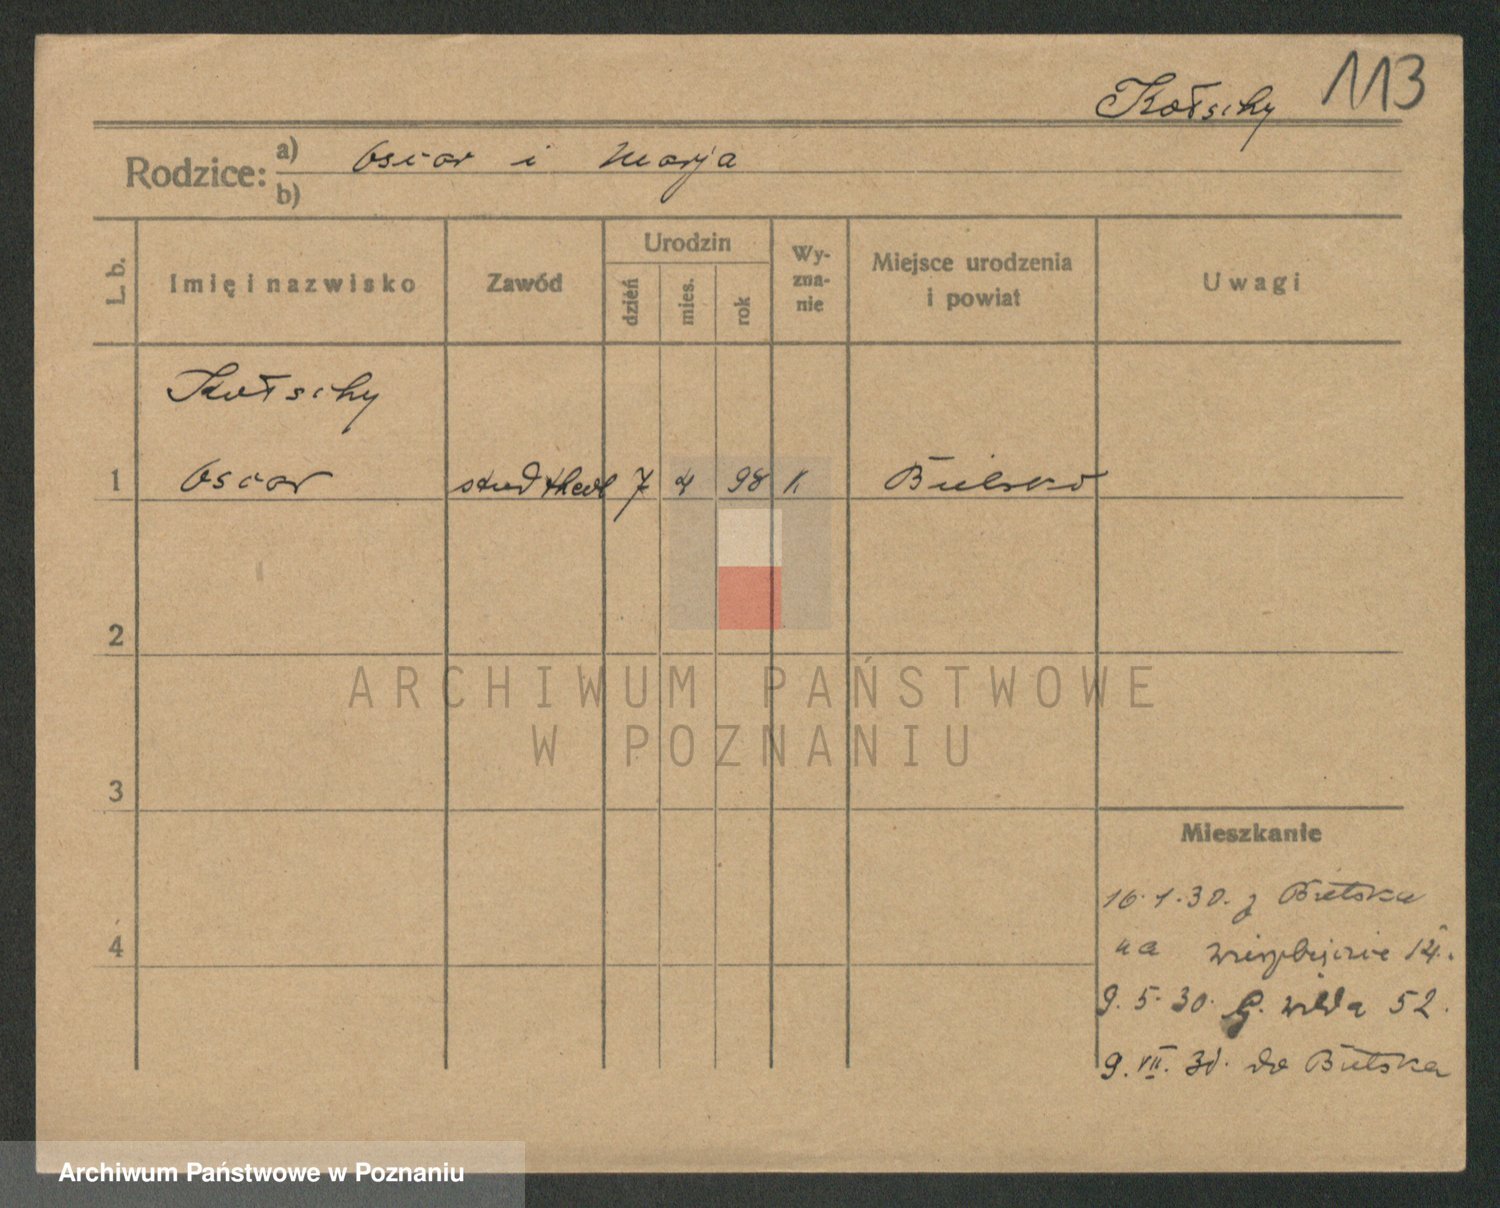 Kotschy 113
Rodzice: a) Oscar i Marja
b)
L. b. Imię i nazwisko Zawód Urodzin dzień mies. rok Wyznanie Miejsce urodzenia i powiat Uwagi
Kotschy
1 Oscar stud theol 7 4 98 k Bielsko
2
ARCHIWUM PAŃSTWOWE
W POZNANIU
3
Mieszkanie
16.1.30. z Bielska
4 na Wierzbięcice 14.
9.5.30. G. Wilda 52.
9.VII.30. do Bielska
Archiwum Państwowe w Poznaniu